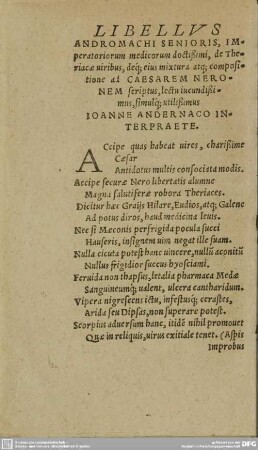 LIBELLVS
ANDROMACHI SENIORIS, IM-
peratoriorum medicorum doctißimi, de The-
riacæ uiribus, deq; eius mixtura atq; composi-
tione ad CAESAREM NERO-
NEM scriptus, lectu iucundißi-
mus, simulq; utilißimus
IOANNE ANDERNACO IN-
TERPRAETE.
Accipe quas habeat uires, charißime
Cæsar
Antidotus multis consociata modis.
Accipe securæ Nero libertatis alumne
Magna salutiferæ robora Theriaces.
Dicitur hæc Graijs Hilare, Eudios, atq; Galene
Ad potus diros, haud medicina leuis.
Nec si Mæconis perfrigida pocula succi
Hauseris, insignem uim negat ille suam.
Nulla cicuta potest hanc uincere, nullũ aconitũ
Nullus frigidior succus hyosciami.
Feruida non thapsus, letalia pharmaca Medæ
Sanguineumq; ualent, ulcera cantharidum.
Vipera nigrescens ictu, infestusq; cerastes,
Arida seu Dipsas, non superare potest.
Scorpius aduersum hanc, itidẽ nihil promouet
Quæ in reliquis, uirus exitiale tenet. (Aspis
improbus